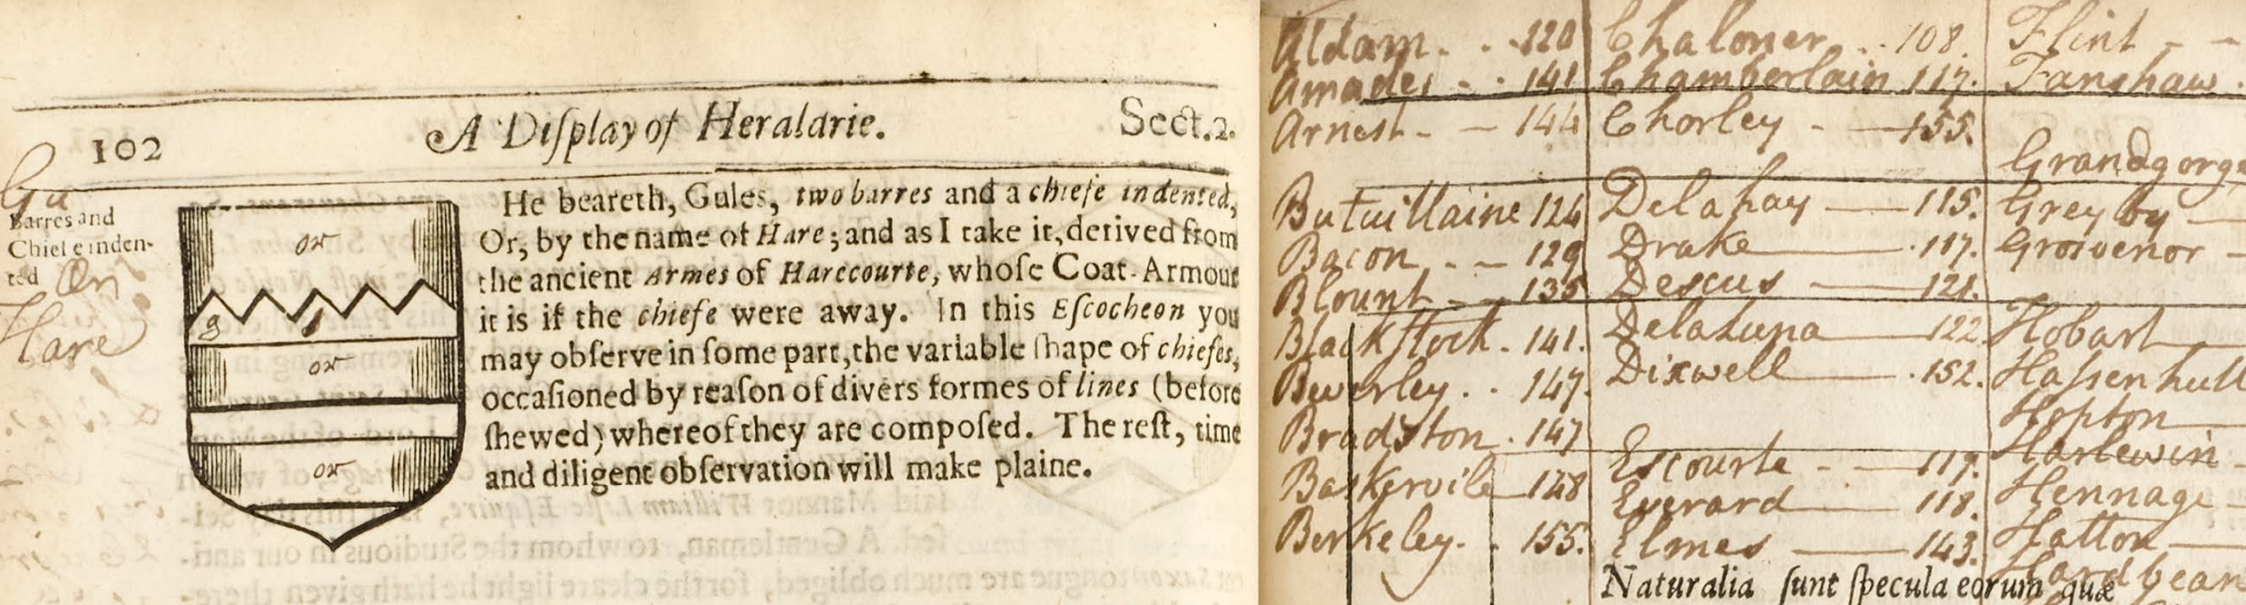 102 A Diſplay of Heraldrie. Sect.2.
Gu
Barres and
Chiefe inden-
ted Or
Hare
or
g
or
or
He beareth, Gules, two barres and a chiefe indented,
Or, by the name of Hare; and as I take it, derived from
the ancient Armes of Harecourte, whoſe Coat-Armour
it is if the chiefe were away. In this Eſcocheon you
may obſerve in ſome part, the variable ſhape of chiefes,
occaſioned by reaſon of divers formes of lines (before
ſhewed) whereof they are compoſed. The reſt, time
and diligent obſervation will make plaine.
Aldam - - 120
Amades - - 141
Arnest - - 144
Butuillaine 124
Bacon - - 129
Blount - 135
Blackstock - 141.
Beverley . . 147.
Bradston . 147
Baskervile 148
Berkeley . . 155.
Chaloner . . 108.
Chamberlain 117.
Chorley - 155.
Delahay 115.
Drake 117.
Descus 121.
Delaluna 122.
Dixwell 152.
Escourte - 117.
Everard 118.
Elmes 143.
Naturalia ſunt ſpecula eorum quæ
Flint - -
Fanshaw .
Grandgorge
Greyby
Grosvenor -
Hobart
Haſsenhull
Hopton
Harlewin -
Hennage -
Hatton
Hardbean